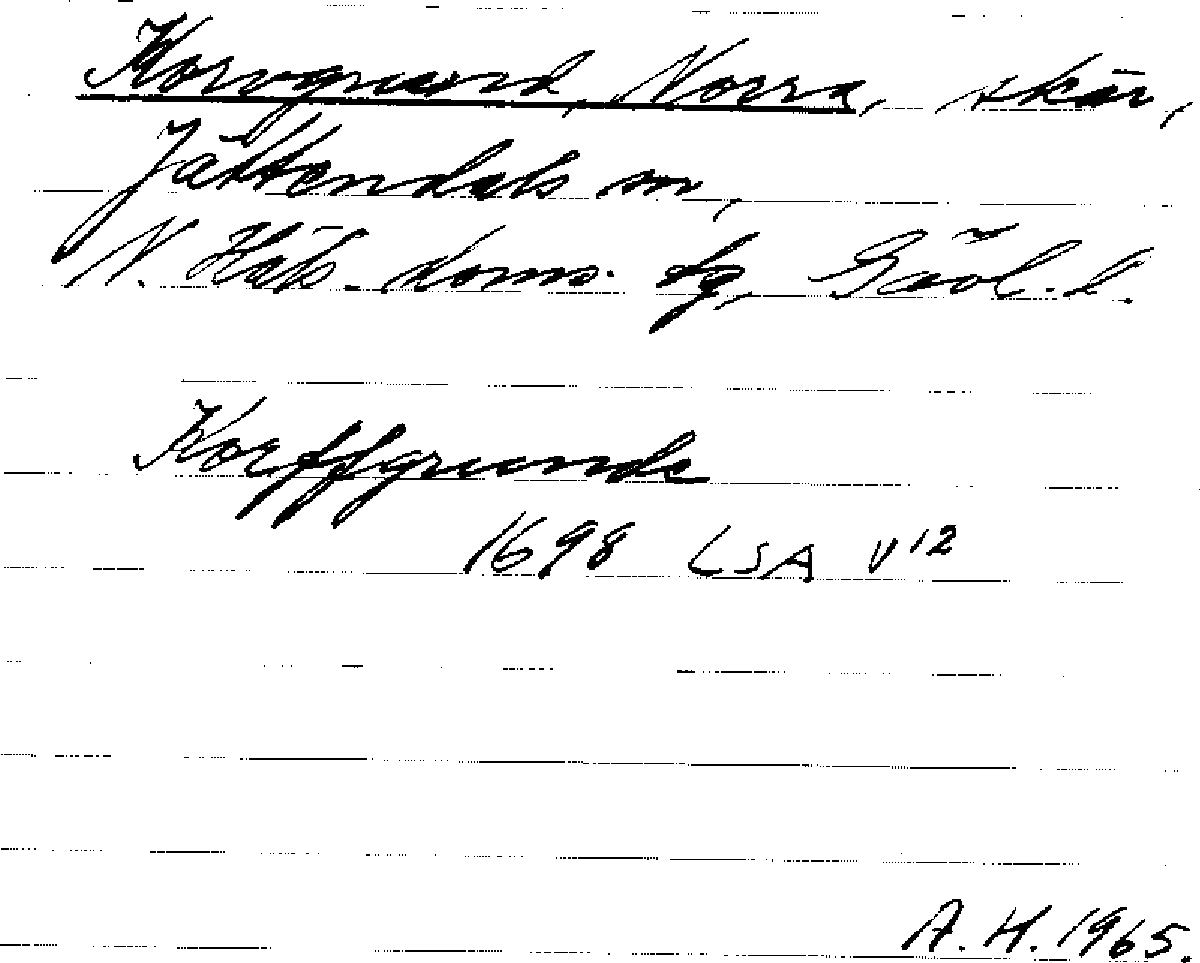 Korvgrund, Norra, skär,
Jättendals sn,
N. Häls. doms. tg, Gävl. l.
Korffgrunde
1698 LSA V12
A. H. 1965.